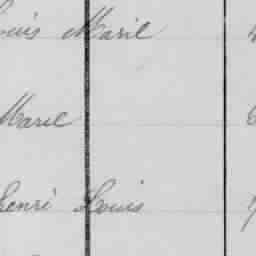 ouis Marie
Marie
Henri Louis